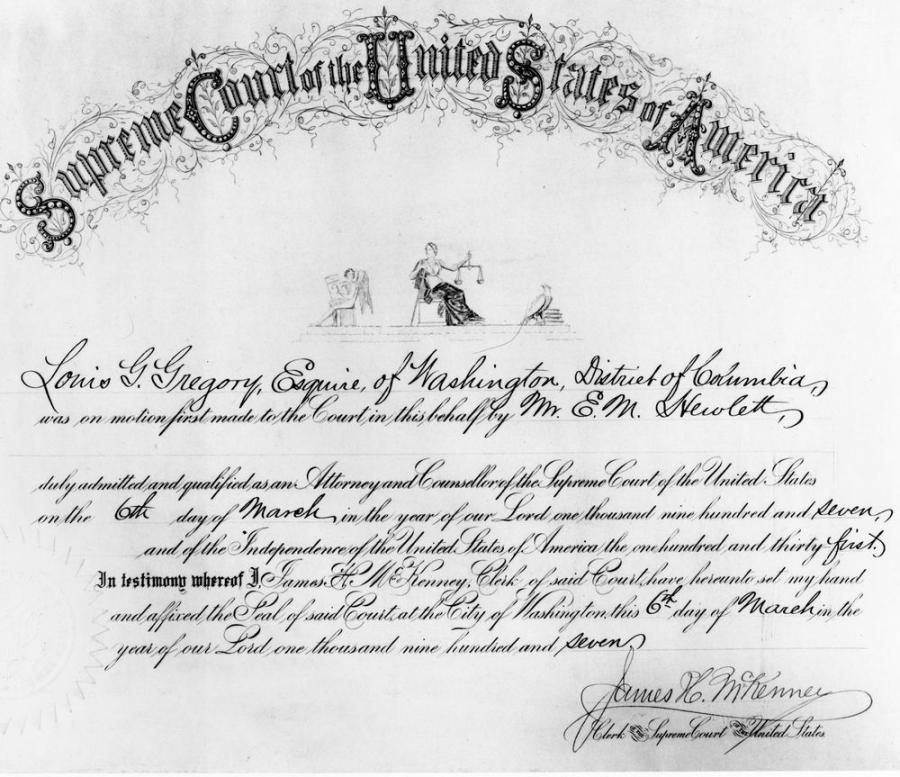 Supreme Court of the United States of America
Louis G. Gregory, Esquire, of Washington, District of Columbia,
was on motion first made to the Court in this behalf by Mr. E. M. Hewlett,
duly admitted and qualified as an Attorney and Counsellor of the Supreme Court of the United States
on the 6th day of March, in the year of our Lord one thousand nine hundred and seven,
and of the Independence of the United States of America the one hundred and thirty first.
In testimony whereof I, James H. McKenney, Clerk of said Court, have hereunto set my hand
and affixed the Seal of said Court, at the City of Washington, this 6th day of March, in the
year of our Lord one thousand nine hundred and seven.
James H. McKenney
Clerk of the Supreme Court of the United States